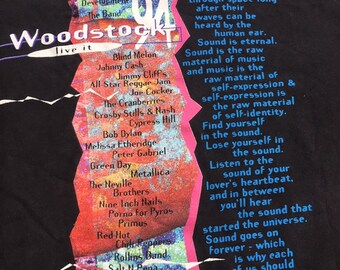 Development
The Band
94
Woodstock
live it
Blind Melon
Johnny Cash
Jimmy Cliff's
All Star Reggae Jam
Joe Cocker
The Cranberries
Crosby Stills & Nash
Cypress Hill
Bob Dylan
Melissa Etheridge
Peter Gabriel
Green Day
Metallica
The Neville
Brothers
Nine Inch Nails
Porno for Pyros
Primus
Red Hot
Chili Peppers
Rollins Band
Salt N Pepa
through space long
after their
waves can be
heard by the
human ear.
Sound is eternal.
Sound is the raw
material of music
and music is the
raw material of
self-expression &
self-expression is
the raw material
of self-identity.
Find yourself
in the sound.
Lose yourself in
the sound.
Listen to the
sound of your
lover's heartbeat,
and in between
you'll hear
the sound that
started the universe.
Sound goes on
forever - which
is why each
of us should